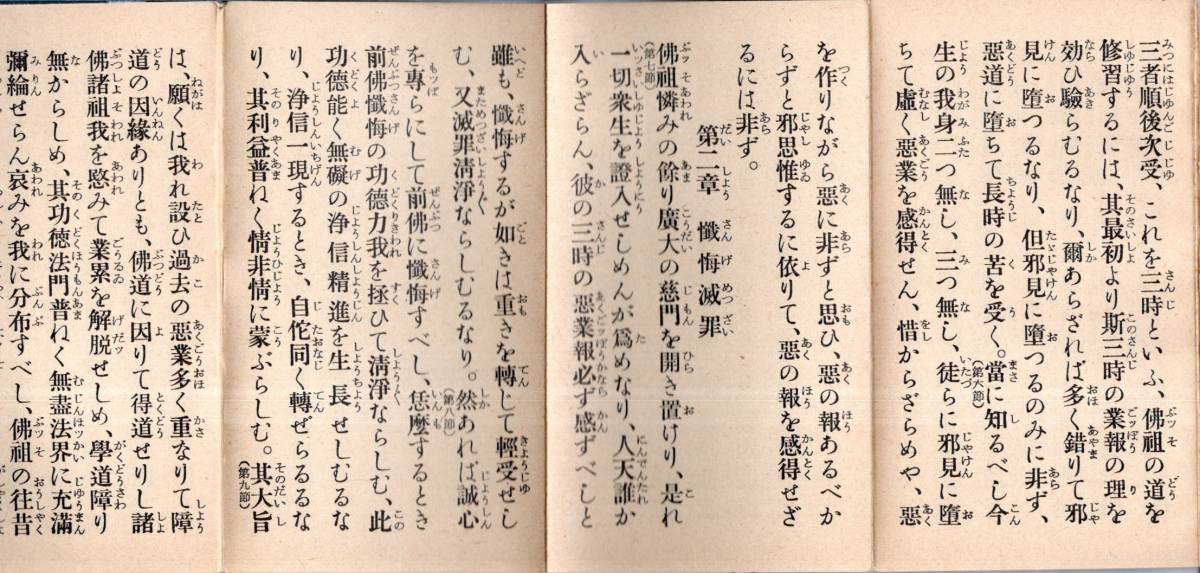 三者順後次受、これを三時といふ、佛祖の道を
修習するには、其最初より斯三時の業報の理を
効ひ驗らむるなり、爾あらざれば多く錯りて邪
見に墮つるなり、但邪見に墮つるのみに非ず、
惡道に墮ちて長時の苦を受く。(第六節)當に知るべし今
生の我身二つ無し、三つ無し、徒らに邪見に墮
ちて虛く惡業を感得せん、惜からざらめや、惡
を作りながら惡に非ずと思ひ、惡の報あるべか
らずと邪思惟するに依りて、惡の報を感得せざ
るには非ず。
第二章 懺悔滅罪
(第七節)佛祖憐みの餘り廣大の慈門を開き置けり、是れ
一切衆生を證入せしめんが爲めなり、人天誰か
入らざらん、彼の三時の惡業報必ず感ずべしと
雖も、懺悔するが如きは重きを轉じて輕受せし
む、又滅罪淸淨ならしむるなり。(第八節)然あれば誠心
を專らにして前佛に懺悔すべし、恁麼するとき
前佛懺悔の功德力我を拯ひて淸淨ならしむ、此
功德能く無礙の淨信精進を生長せしむるな
り、淨信一現するとき、自佗同く轉ぜらるるな
り、其利益普ねく情非情に蒙ぶらしむ。(第九節)其大旨
は、願くは我れ設ひ過去の惡業多く重なりて障
道の因緣ありとも、佛道に因りて得道せりし諸
佛諸祖我を愍みて業累を解脫せしめ、學道障り
無からしめ、其功德法門普ねく無盡法界に充滿
彌綸せらん哀みを我に分布すべし、佛祖の往昔